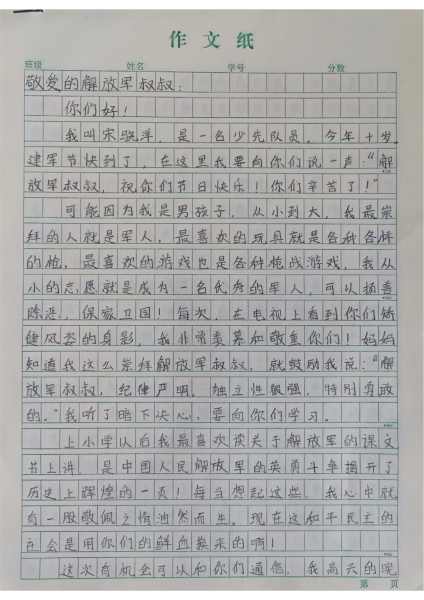 作文纸
班级 姓名 学号 分数
敬爱的解放军叔叔:
你们好!
我叫宋骁洋,是一名少先队员,今年十岁,
建军节快到了,在这里我要向你们说一声:“解
放军叔叔,祝你们节日快乐!你们辛苦了!”
可能因为我是男孩子,从小到大,我最崇
拜的人就是军人,最喜欢的玩具就是各种各样
的枪,最喜欢的游戏也是各种枪战游戏,我从
小的志愿就是成为一名优秀的军人,可以扬善
除恶,保家卫国!每次,在电视上看到你们矫
健风姿的身影,我非常羡慕和敬重你们!妈妈
知道我这么崇拜解放军叔叔,就鼓励我说:“解
放军叔叔,纪律严明,独立性很强,特别勇敢
的。”我听了暗下决心,要向你们学习。
上小学以后我最喜欢读关于解放军的课文
书上讲,是中国人民解放军的英勇斗争揭开了
历史上辉煌的一页!每当想起这些,我心中就
有一股敬佩之情油然而生。现在这和平民主的
社会是用你们的鲜血换来的啊!
这次有机会可以和你们通信,我高兴的晚
第 页